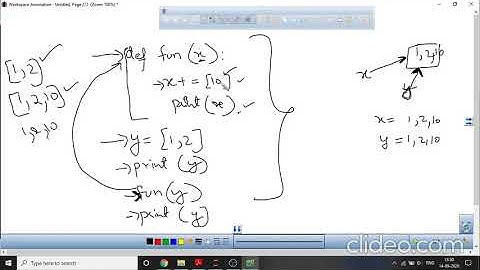 Workspace Annotation - Untitled, Page 2/2 (Zoom 100%) *
def fun(x):
x+=[10]
print(x).
y=[1,2]
print(y)
fun(y)
print(y)
[1,2]
[1,2,10]
1,2,10
1,2,10
x
y
x = 1,2,10
y = 1,2,10
ENG
13:30
14-09-2020
clideo.com